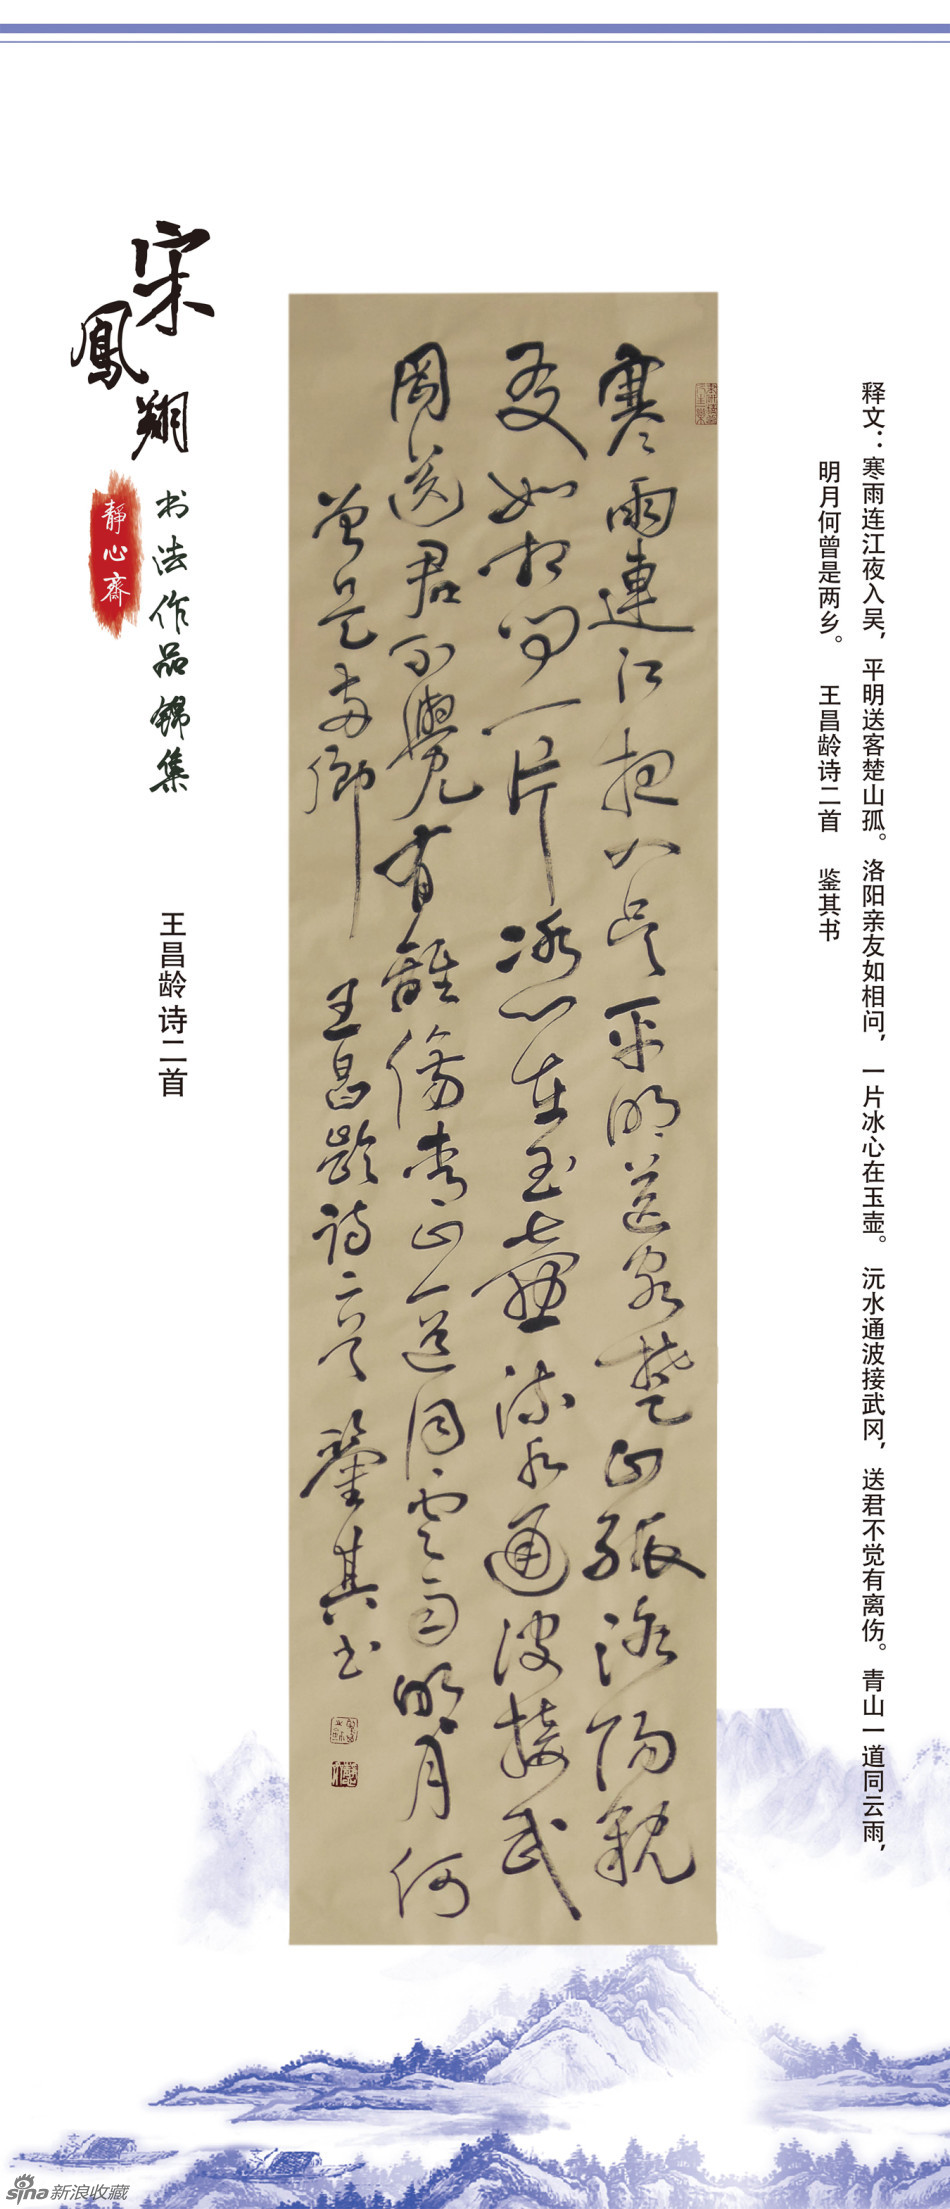 宋鳳翔
书法作品锦集
靜心齋
王昌龄诗二首
寒雨連江夜入吴平明送客楚山孤洛陽親
友如相问一片冰心在玉壶流水通波接武
岡送君不覺有離傷青山一道同雲雨明月何
曾是两鄉 王昌齡詩二首 鑒其书
释文：寒雨连江夜入吴，平明送客楚山孤。洛阳亲友如相问，一片冰心在玉壶。沅水通波接武冈，送君不觉有离伤。青山一道同云雨，
明月何曾是两乡。 王昌龄诗二首 鉴其书
sina新浪收藏